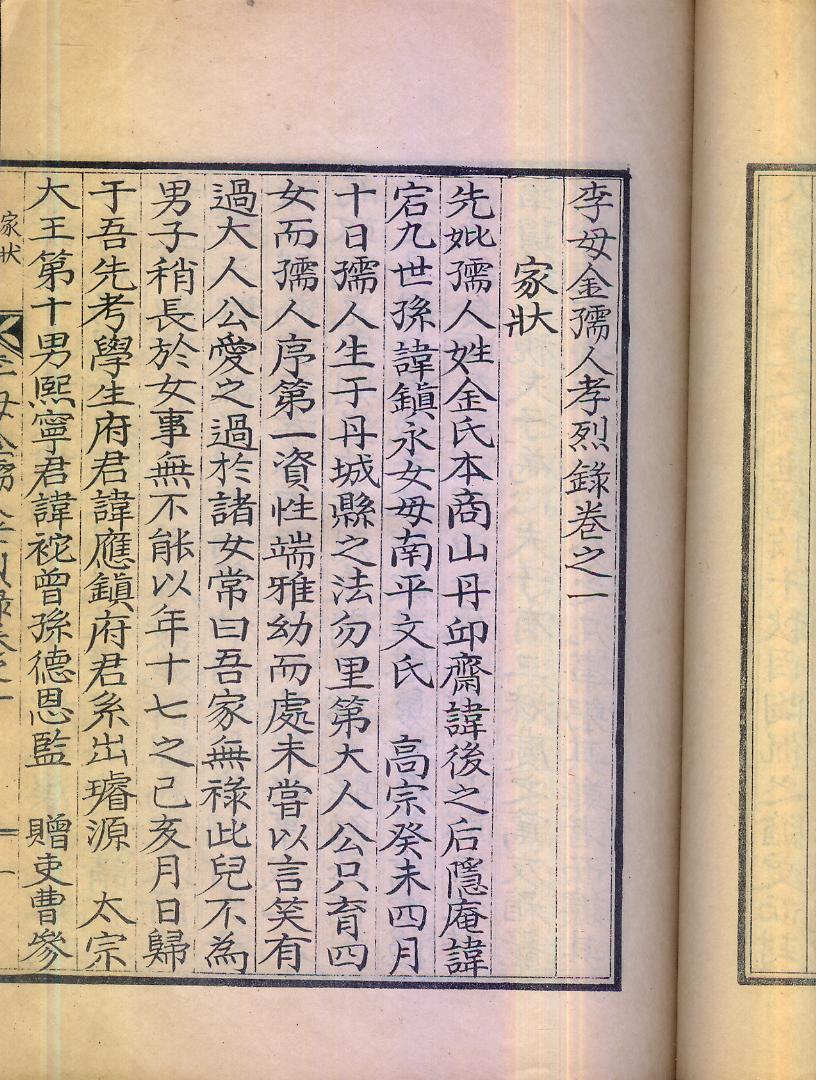 李母金孺人孝烈錄卷之一
家狀
先妣孺人姓金氏本商山丹邱齋諱後之后隱庵諱
宕九世孫諱鎭永女母南平文氏 高宗癸未四月
十日孺人生于丹城縣之法勿里第大人公只育四
女而孺人序第一資性端雅幼而處未嘗以言笑有
過大人公愛之過於諸女常曰吾家無祿此兒不為
男子稍長於女事無不能以年十七之己亥月日歸
于吾先考學生府君諱應鎭府君系出璿源 太宗
大王第十男熙寧君諱袉曾孫德恩監 贈吏曹參
家狀